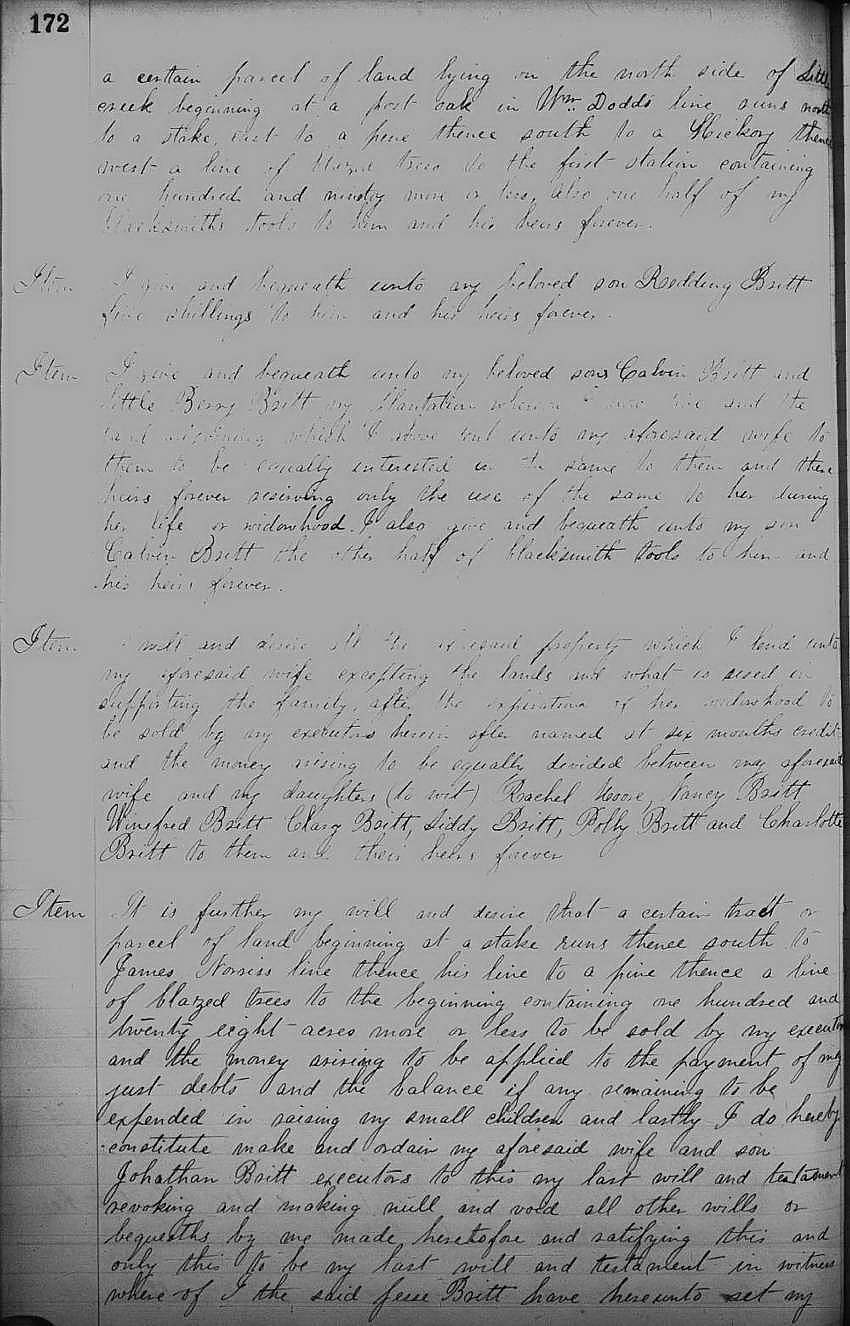 172
a certain parcel of land lying on the north side of Little
creek beginning at a post oak in Wm. Dodds line runs north
to a stake, east to a pine thence south to a Hickory thence
west a line of blazed trees to the first station containing
one hundred and ninety more or less, also one half of my
blacksmiths tools to him and his heirs forever.
Item I give and bequeath unto my beloved son Redding Britt
five shillings to him and his heirs forever.
Item I give and bequeath unto my beloved sons Calvin Britt and
little Berry Britt my Plantation whereon I now live and the
land adjoining which I above lent unto my aforesaid wife to
them to be equally interested in the same to them and there
heirs forever reserving only the use of the same to her during
her life or widowhood. I also give and bequeath unto my son
Calvin Britt the other half of blacksmith tools to him and
his heirs forever.
Item I will and desire all the aforesaid property which I lend unto
my aforesaid wife excepting the lands and what is used in
supporting the family, after the expiration of her widowhood to
be sold by my executors herein after named at six months credit
and the money arising to be equally devided between my aforesaid
wife and my daughters (to wit) Rachel Moore, Nancy Britt
Winefred Britt Clary Britt, Siddy Britt, Polly Britt and Charlotte
Britt to them and their heirs forever
Item It is further my will and desire that a certain tract or
parcel of land beginning at a stake runs thence south to
James Norriss line thence his line to a pine thence a line
of blazed trees to the beginning containing one hundred and
twenty eight acres more or less to be sold by my executors
and the money arising to be applied to the payment of my
just debts and the balance if any remaining to be
expended in raising my small children and lastly I do hereby
constitute make and ordain my aforesaid wife and son
Johathan Britt executors to this my last will and testament
revoking and making null and void all other wills or
bequeaths by me made heretofore and ratifying this and
only this to be my last will and testament in witness
where of I the said Jesse Britt have hereunto set my